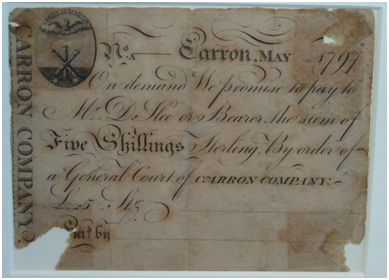 CARRON COMPANY
No. — Carron, MAY 1797
On demand We promise to pay to
Mr. D. Slee or Bearer the sum of
Five Shillings Sterling. By order of
a General Court of CARRON COMPANY.
£ 5 Sh
by